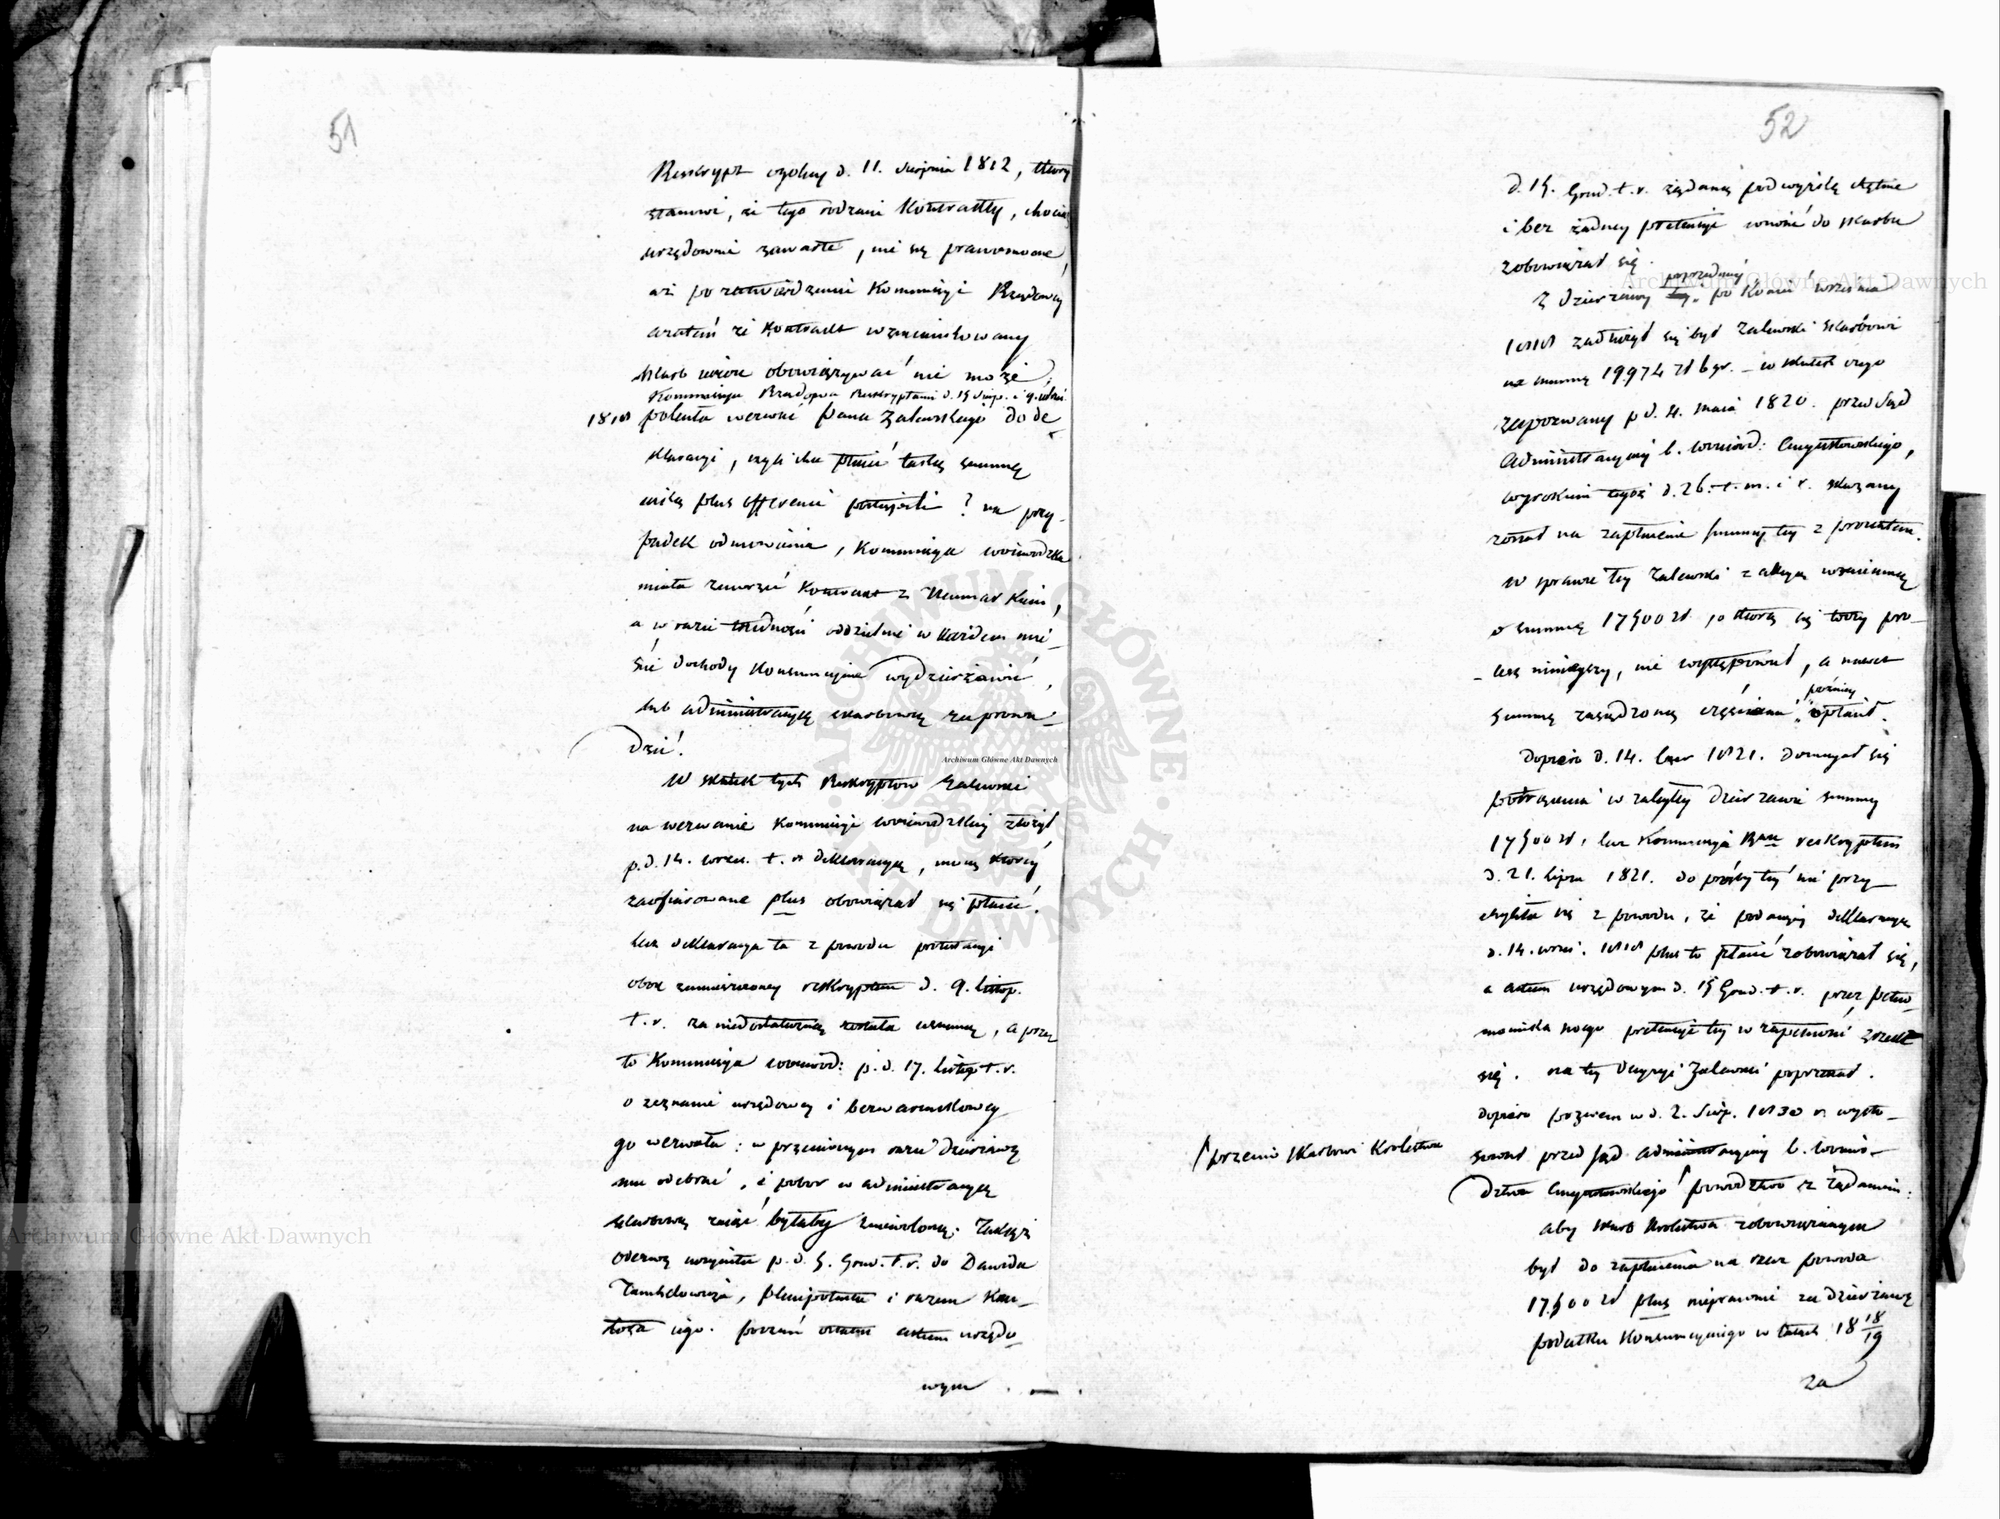 51
Reskrypt ogólny d. 11. Sierpnia 1812, który
stanowi, że tego rodzaiu Kontrakty, chociaż
urzędownie zawarte, nie są prawomocne,
aż po zatwierdzeniu Kommissyi Rządowey
że Kontrakt wzmiankowany
Skarb obowiązywać nie może.
Kommissya Rządowa Reskryptami d. 15 Sierp. i 9.
1818 poleciła wezwać Pana Zalewskiego do de-
klaracyi, czyli chce płacić taką summę
iaką plus offerenci postąpili? na przy-
padek odmówienia, Kommissya woiewódzka
miała zawrzeć Kontrakt z Neumarkiem,
a w razie trudności oddzielnie w każdem mie-
ście dochody Konsumcyine wydzierżawić,
lub administracyę skarbową zaprowa-
dzić.
W skutek tych Reskryptów Zalewski
na wezwanie Kommissyi woiewódzkiey złożył
p. d. 14. wrześ. t. r. deklaracyą, mocą którey
zaofiarowane plus obowiązał się płacić.
Lecz deklaracya ta z powodu protestacyi
obok zamieszczoney reskryptem d. 9. listop.
t. r. za niedostateczną została uznaną, a przez
to Kommissya woiewód: p. d. 17. listop. t. r.
o zeznanie urzędowey i bezwarunkowey
go wezwała: w przeciwnym razie dzierżawę
mu odebrać, i pobor w administracyą
skarbową zaiąć byłaby zniewoloną. Takąż
odezwę uczyniła p. d. 5. Grud. t. r. do Dawida
plenipotenta i razem Kan-
tora iego. poczem aktem urzędo-
wym
52
d. 15. Grud. t. r. żądaną podwyżkę chętnie
i bez żadney pretensyi wnosić do skarbu
zobowiązał się.
poprzedniey
Z dzierżawy po koniec września
1818 zadłużył się był Zalewski skarbowi
na summę 19,974 zł 6 gr. – w skutek czego
zapozwany p. d. 4. maia 1820. przed Sąd
Administracyiny b. woiewód: Augustowskiego,
wyrokiem tegoż d. 26. t. m. i r. skazany
został na zapłacenie summy tey z procentem.
W sprawie tey Zalewski z akcyą wzaiemną
o summę 17500 zł. o którą się toczy pro-
ces ninieyszy, nie występował, a nawet
później
summę zasądzoną częściami opłacił.
Dopiero d. 14. Czer 1821. domagał się
potrącenia w zaległey dzierżawie summy
17500 zł, lecz Kommissya Rząu reskryptem
d. 21. Lipca 1821. do prośby tey nie przy-
chyliła się z powodu, że podaney deklaracyi
d. 14. wrześ. 1818 plus to płacić zobowiązał się,
a aktem urzędowym d. 15 Grud. t. r. przez pełno-
mocnika swego pretensyi tey w zupełności zrzekł
się. na tey decyzyi Zalewski poprzestał.
Dopiero pozwem w d. 2. Sierp. 1830 r. wysto-
sował przed Sąd administracyiny b. woiewó-
/ przeciw Skarbowi Królestwa
dztwa Augustowskiego / powództwo z żądaniem:
aby Skarb Królestwa zobowiązanym
był do zapłacenia na rzecz powoda
17,500 zł plus nieprawnie za dzierżawę
podatku Konsumcyinego w latach 18 18/19
za